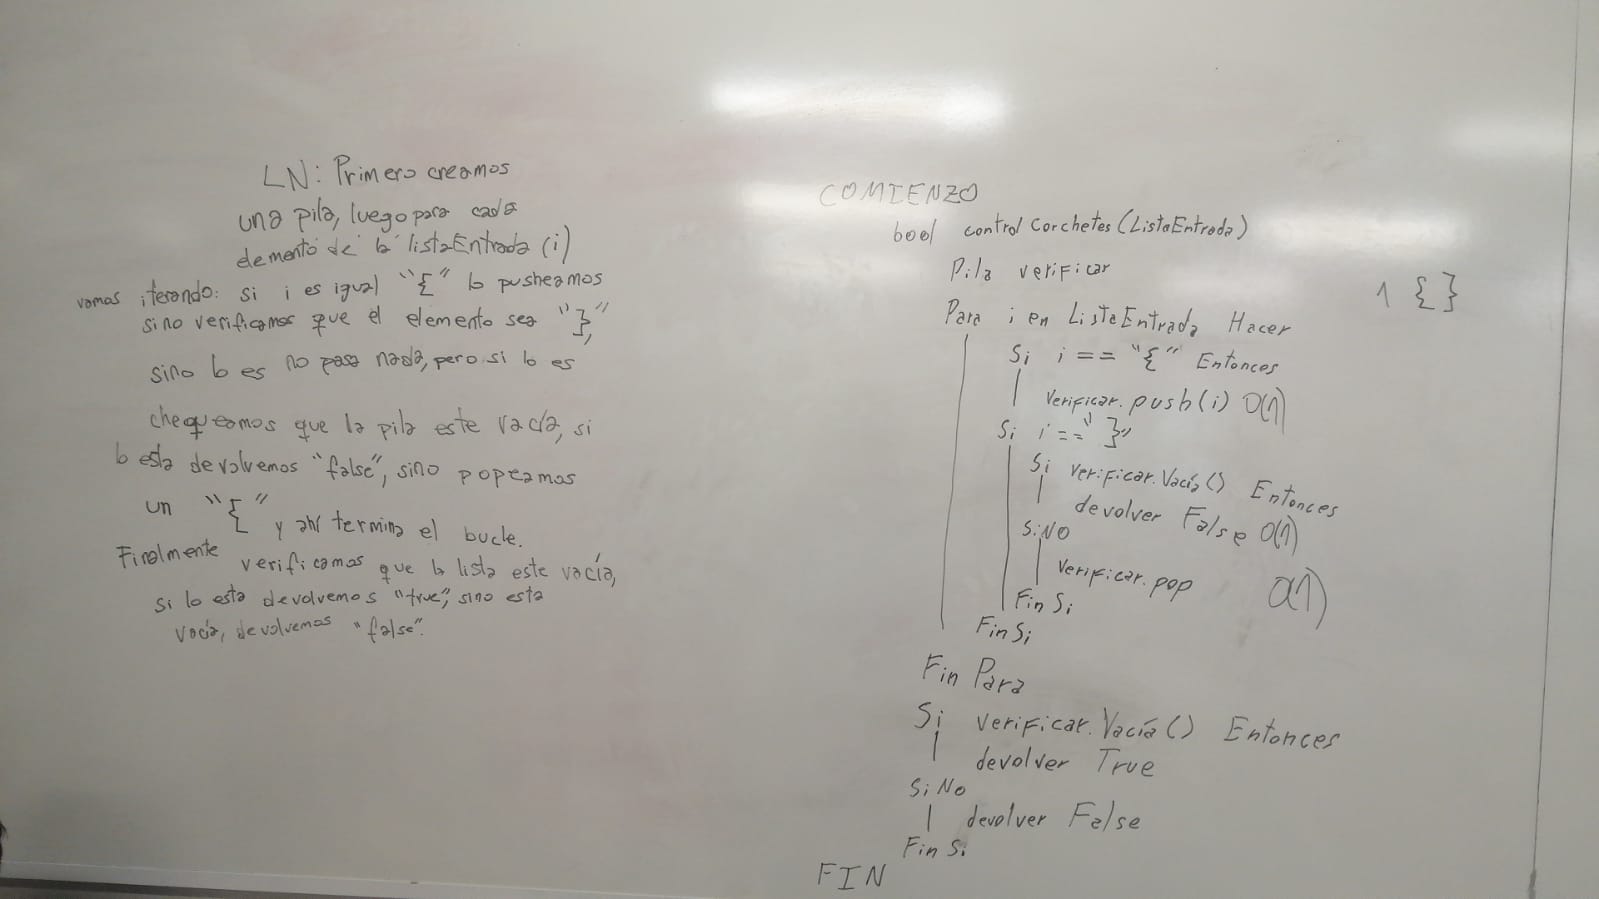 LN: Primero creamos
una pila, luego para cada
elemento de la listaEntrada (i)
vamos iterando: si i es igual "{" lo pusheamos
sino verificamos que el elemento sea "}",
sino lo es no pasa nada, pero si lo es
chequeamos que la pila este vacía, si
lo esta devolvemos "false", sino popeamos
un "{" y ahí termina el bucle.
Finalmente verificamos que la lista este vacía,
si lo esta devolvemos "true", sino esta
vacía, devolvemos "false".
COMIENZO
bool control Corchetes (ListaEntrada)
Pila verificar
Para i en ListaEntrada Hacer
Si i == "{" Entonces
verificar.push(i) O(1)
Si i == "}"
Si verificar.Vacía() Entonces
devolver False O(1)
SiNO
verificar.pop O(1)
Fin Si
Fin Si
Fin Para
Si verificar.Vacía() Entonces
devolver True
SiNo
devolver False
Fin Si
FIN
1 {}